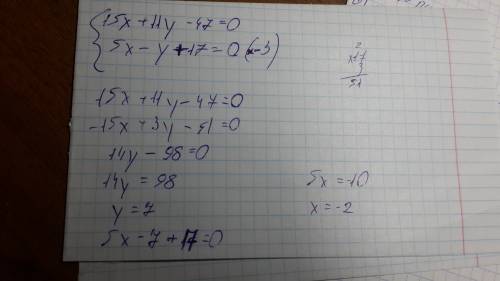 15x+11y-47=0
5x-y+17=0 (x-3)
2
x17
3
51
15x+11y-47=0
-15x+3y-51=0
14y-98=0
14y=98
y=7
5x-7+17=0
5x=-10
x=-2